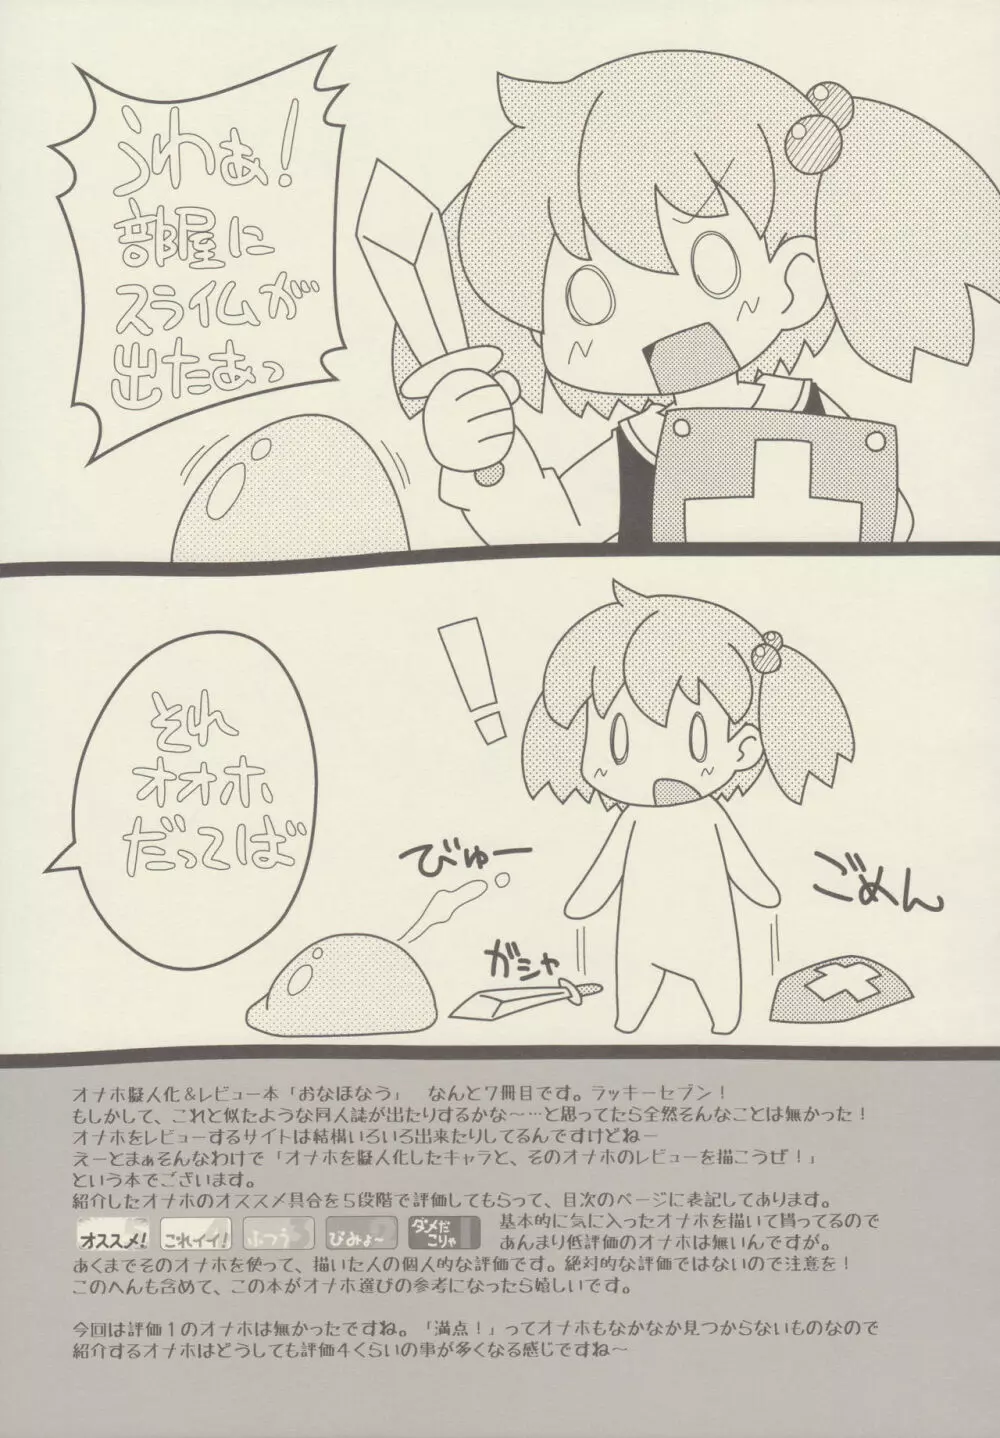 うわぁ!
部屋に
スライムが
出たぁっ
それ
オオホ
だってば
びゅー
ガシャ
ごめん
オナホ擬人化&レビュー本「おなほなう」 なんと7冊目です。ラッキーセブン!
もしかして、これと似たような同人誌が出たりするかな〜…と思ってたら全然そんなことは無かった!
オナホをレビューするサイトは結構いろいろ出来たりしてるんですけどねー
えーとまぁそんなわけで「オナホを擬人化したキャラと、そのオナホのレビューを描こうぜ!」
という本でございます。
紹介したオナホのオススメ具合を5段階で評価してもらって、目次のページに表記してあります。
オススメ! これイイ! ふつう びみょ〜 ダメだこりゃ
基本的に気に入ったオナホを描いて貰ってるので
あんまり低評価のオナホは無いんですが。
あくまでそのオナホを使って、描いた人の個人的な評価です。絶対的な評価ではないので注意を!
このへんも含めて、この本がオナホ選びの参考になったら嬉しいです。
今回は評価1のオナホは無かったですね。「満点!」ってオナホもなかなか見つからないものなので
紹介するオナホはどうしても評価4くらいの事が多くなる感じですね〜